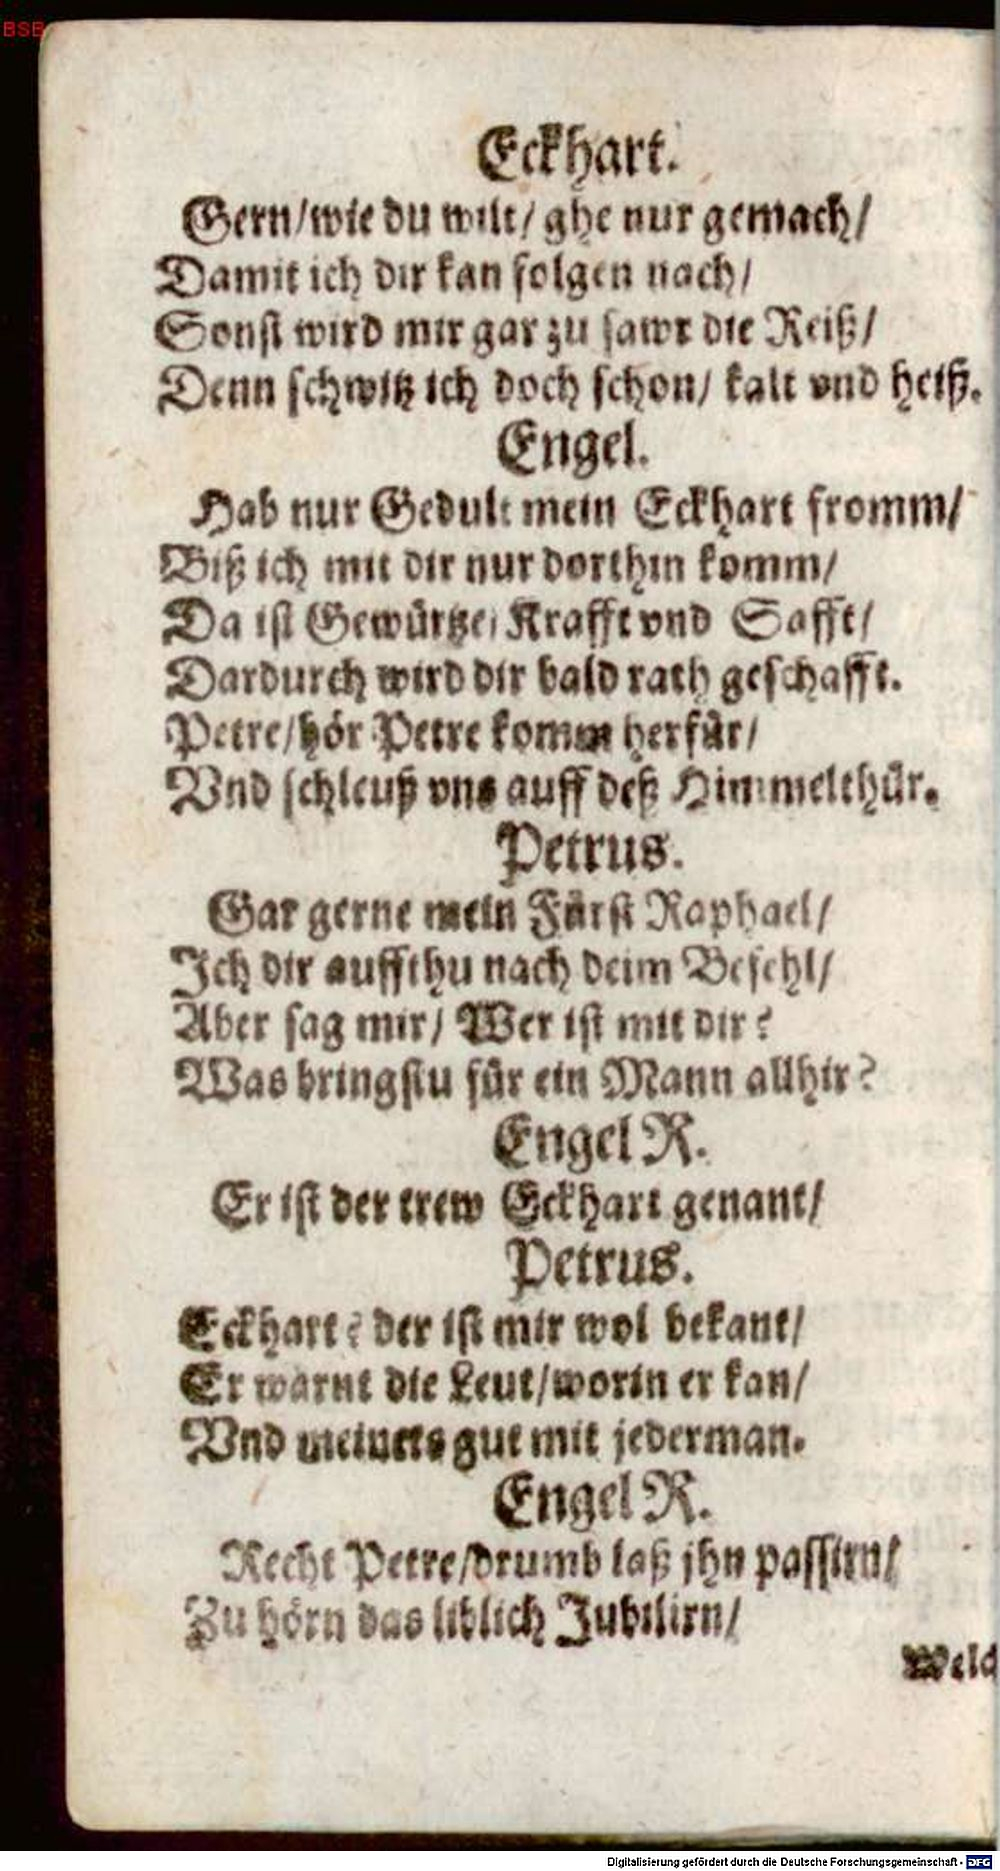 BSB
Eckhart.
Gern/wie du wilt/ ghe nur gemach/
Damit ich dir kan folgen nach/
Sonst wird mir gar zu sawr die Reiß/
Denn schwitz ich doch schon/ kalt vnd heiß.
Engel.
Hab nur Gedult mein Eckhart fromm/
Biß ich mit dir nur dorthin komm/
Da ist Gewürtze/ Krafft vnd Safft/
Dardurch wird dir bald rath geschafft.
Petre/hör Petre komm herfür/
Vnd schleuß vns auff deß Himmelthür.
Petrus.
Gar gerne mein Fürst Raphael/
Ich dir auffthu nach deim Befehl/
Aber sag mir/ Wer ist mit dir?
Was bringstu für ein Mann allhir?
Engel R.
Er ist der trew Eckhart genant/
Petrus.
Eckhart? der ist mir wol bekant/
Er warnt die Leut/worin er kan/
Vnd meinets gut mit jederman.
Engel R.
Recht Petre/drumb laß jhn passirn/
Zu hörn das liblich Jubilirn/
Welch
Digitalisierung gefördert durch die Deutsche Forschungsgemeinschaft - DFG